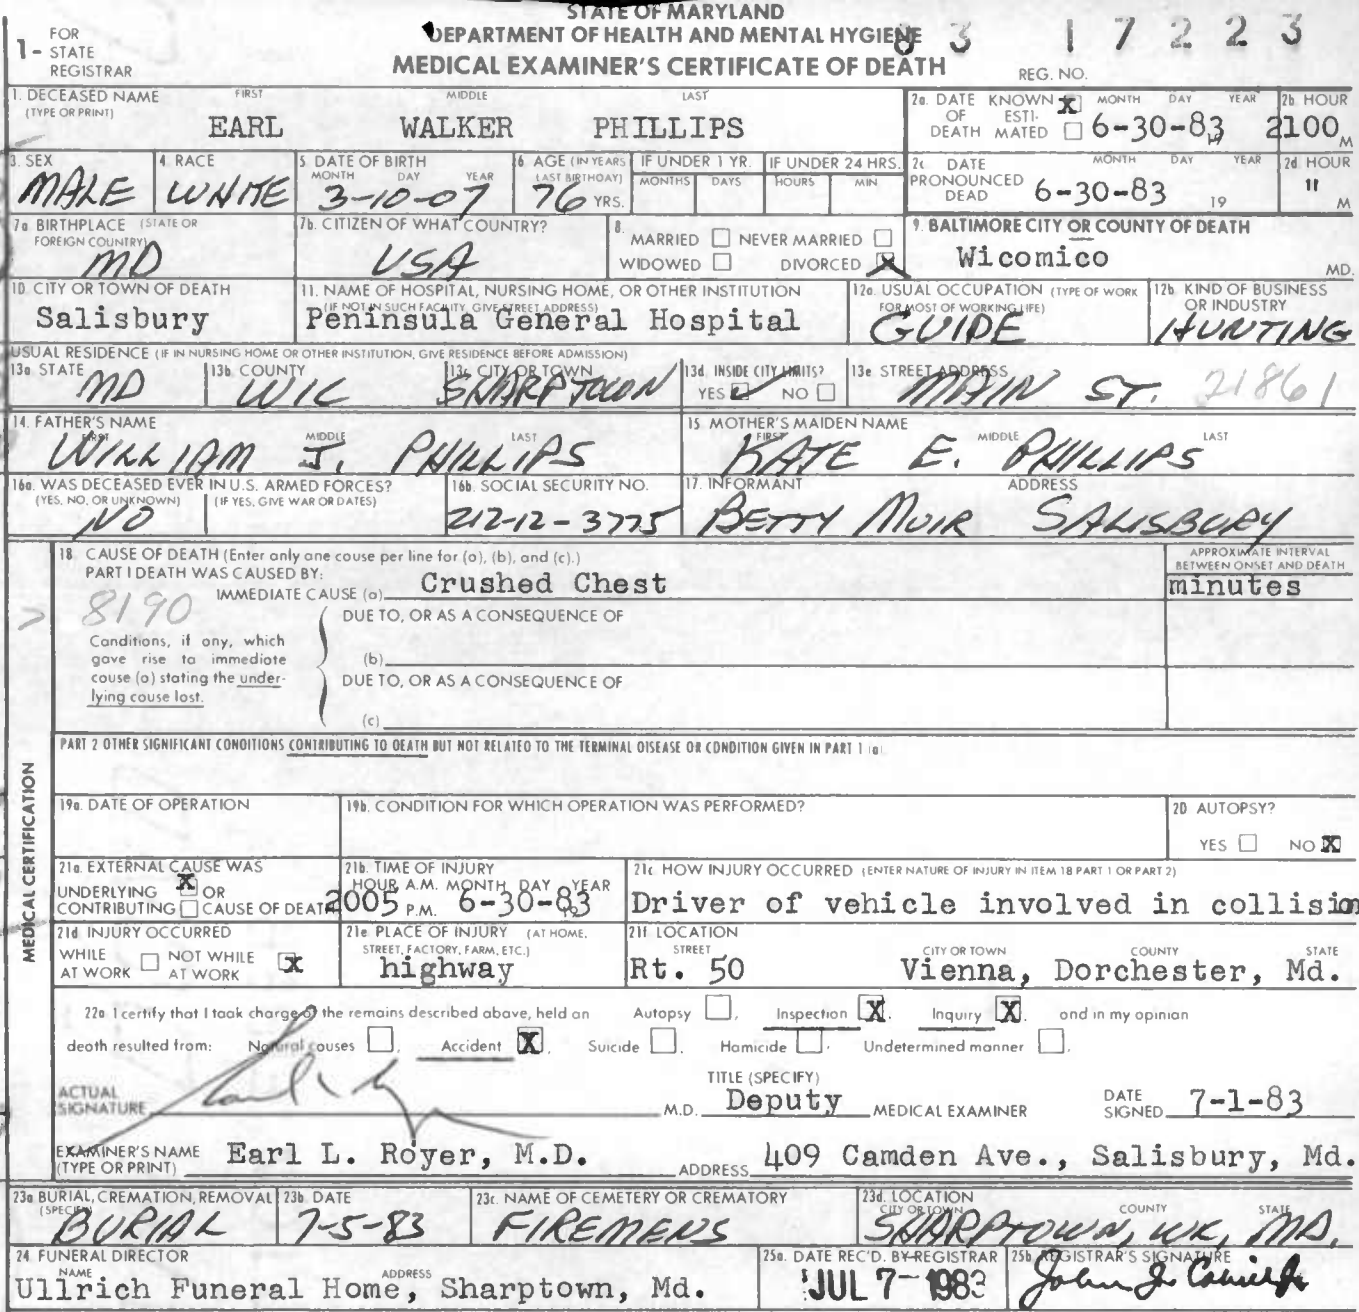 STATE OF MARYLAND
DEPARTMENT OF HEALTH AND MENTAL HYGIENE
MEDICAL EXAMINER'S CERTIFICATE OF DEATH
1- FOR STATE REGISTRAR
83 17223
REG. NO.
1. DECEASED NAME (TYPE OR PRINT) FIRST MIDDLE LAST
EARL WALKER PHILLIPS
2a. DATE OF DEATH KNOWN X ESTIMATED MONTH DAY YEAR 6-30-83 19
2b. HOUR 2100 M
3. SEX MALE
4. RACE WHITE
5. DATE OF BIRTH MONTH DAY YEAR 3-10-07
6. AGE (IN YEARS LAST BIRTHDAY) 76 YRS.
IF UNDER 1 YR. MONTHS DAYS
IF UNDER 24 HRS. HOURS MIN
2c. DATE PRONOUNCED DEAD MONTH DAY YEAR 6-30-83 19
2d. HOUR " M
7a. BIRTHPLACE (STATE OR FOREIGN COUNTRY) MD
7b. CITIZEN OF WHAT COUNTRY? USA
8. MARRIED NEVER MARRIED
WIDOWED DIVORCED X
9. BALTIMORE CITY OR COUNTY OF DEATH
Wicomico MD.
10. CITY OR TOWN OF DEATH
Salisbury
11. NAME OF HOSPITAL, NURSING HOME, OR OTHER INSTITUTION
(IF NOT IN SUCH FACILITY, GIVE STREET ADDRESS)
Peninsula General Hospital
12a. USUAL OCCUPATION (TYPE OF WORK FOR MOST OF WORKING LIFE)
GUIDE
12b. KIND OF BUSINESS OR INDUSTRY
HUNTING
USUAL RESIDENCE (IF IN NURSING HOME OR OTHER INSTITUTION, GIVE RESIDENCE BEFORE ADMISSION)
13a. STATE MD
13b. COUNTY WIC
13c. CITY OR TOWN SHARPTOWN
13d. INSIDE CITY LIMITS? YES NO
13e. STREET ADDRESS MAIN ST. 21861
14. FATHER'S NAME FIRST MIDDLE LAST
WILLIAM J. PHILLIPS
15. MOTHER'S MAIDEN NAME FIRST MIDDLE LAST
KATE E. PHILLIPS
16a. WAS DECEASED EVER IN U.S. ARMED FORCES?
(YES, NO, OR UNKNOWN) (IF YES, GIVE WAR OR DATES)
NO
16b. SOCIAL SECURITY NO.
212-12-3775
17. INFORMANT ADDRESS
BETTY MUIR SALISBURY
MEDICAL CERTIFICATION
18. CAUSE OF DEATH (Enter only one cause per line for (a), (b), and (c).)
PART I DEATH WAS CAUSED BY:
IMMEDIATE CAUSE (a) Crushed Chest
APPROXIMATE INTERVAL BETWEEN ONSET AND DEATH
minutes
8190
DUE TO, OR AS A CONSEQUENCE OF
Conditions, if any, which gave rise to immediate cause (a) stating the underlying cause last.
(b)
DUE TO, OR AS A CONSEQUENCE OF
(c)
PART 2 OTHER SIGNIFICANT CONDITIONS CONTRIBUTING TO DEATH BUT NOT RELATED TO THE TERMINAL DISEASE OR CONDITION GIVEN IN PART 1 (a)
19a. DATE OF OPERATION
19b. CONDITION FOR WHICH OPERATION WAS PERFORMED?
20 AUTOPSY?
YES NO X
21a. EXTERNAL CAUSE WAS
UNDERLYING X OR
CONTRIBUTING CAUSE OF DEATH
21b. TIME OF INJURY
HOUR A.M. MONTH DAY YEAR
2005 P.M. 6-30-83 19
21c. HOW INJURY OCCURRED (ENTER NATURE OF INJURY IN ITEM 18 PART 1 OR PART 2)
Driver of vehicle involved in collision
21d INJURY OCCURRED
WHILE AT WORK NOT WHILE AT WORK X
21e PLACE OF INJURY (AT HOME, STREET, FACTORY, FARM, ETC.)
highway
21f LOCATION
STREET CITY OR TOWN COUNTY STATE
Rt. 50 Vienna, Dorchester, Md.
22a I certify that I took charge of the remains described above, held an Autopsy, Inspection X, Inquiry X, and in my opinion
death resulted from: Natural causes, Accident X, Suicide, Homicide, Undetermined manner.
ACTUAL SIGNATURE M.D.
TITLE (SPECIFY)
Deputy MEDICAL EXAMINER
DATE SIGNED 7-1-83
EXAMINER'S NAME (TYPE OR PRINT) Earl L. Royer, M.D.
ADDRESS 409 Camden Ave., Salisbury, Md.
23a BURIAL, CREMATION, REMOVAL (SPECIFY)
BURIAL
23b. DATE
7-5-83
23c. NAME OF CEMETERY OR CREMATORY
FIREMENS
23d. LOCATION
CITY OR TOWN COUNTY STATE
SHARPTOWN, WIC, MD.
24 FUNERAL DIRECTOR
NAME ADDRESS
Ullrich Funeral Home, Sharptown, Md.
25a. DATE REC'D. BY REGISTRAR
JUL 7-1983
25b. REGISTRAR'S SIGNATURE